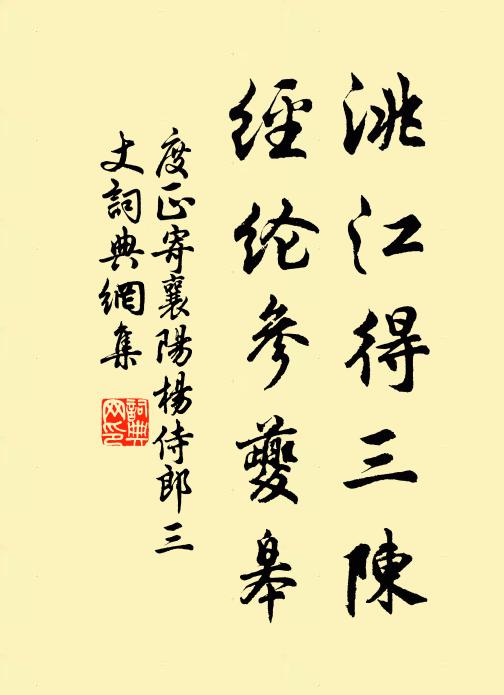 洮江得三陳
經纶參夔皋
度正寄襄陽楊侍郎三
丈詞典網集
詞典
网印